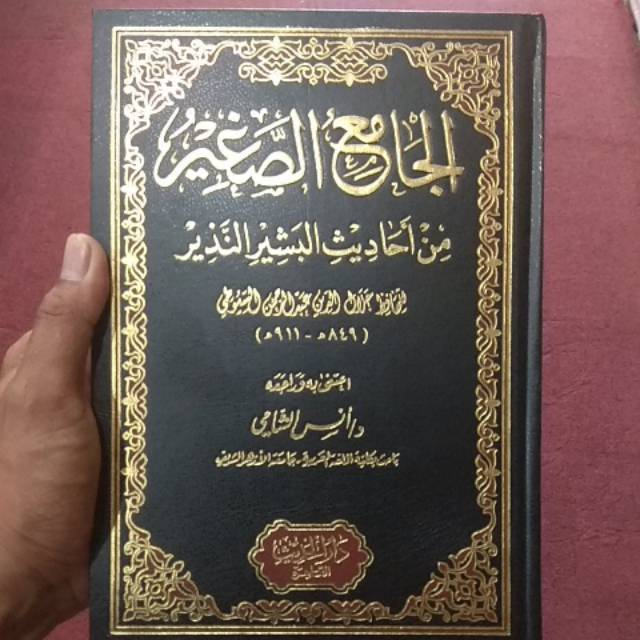 الجَامِعُ الصَّغِيْرُ
مِنْ أَحَادِيْثِ البَشِيْرِ النَّذِيْرِ
للحافظ جلال الدين عبد الرحمن السيوطي
(٨٤٩هـ - ٩١١هـ)
اعتنى به وراجعه
د/أنس الشامي
دار الحديث
القاهرة